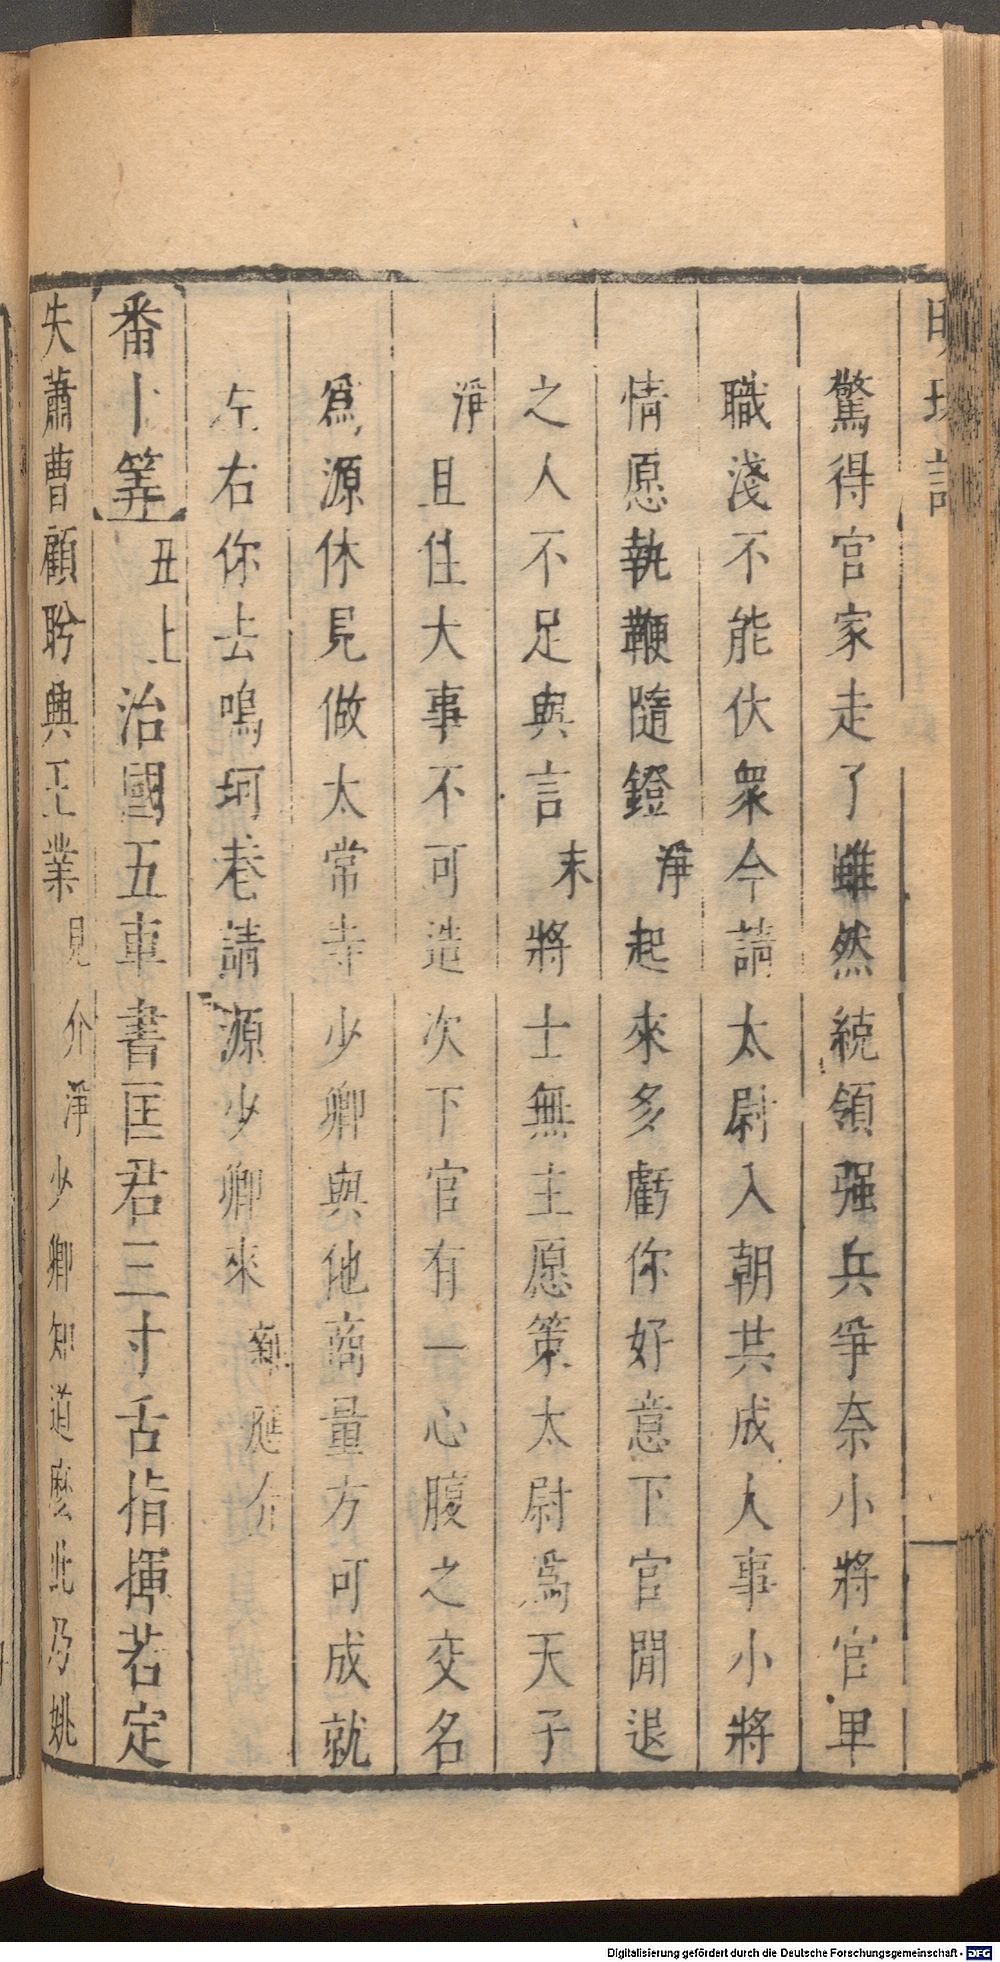 明珠記
驚得官家走了雖然統領强兵爭奈小將官卑
職淺不能伏衆今請太尉入朝共成大事小將
情愿執鞭隨鐙淨起來多虧你好意下官閒退
之人不足與言末將士無主愿策太尉爲天子
淨且住大事不可造次下官有一心腹之交名
爲源休見做太常寺少卿與他商量方可成就
左右你去鳴珂巷請源少卿來應介
番卜筭丑上治國五車書匡君三寸舌指揮若定
失蕭曹顧盼興王業見介淨少卿知道麽此乃姚
Digitalisierung gefördert durch die Deutsche Forschungsgemeinschaft - DFG